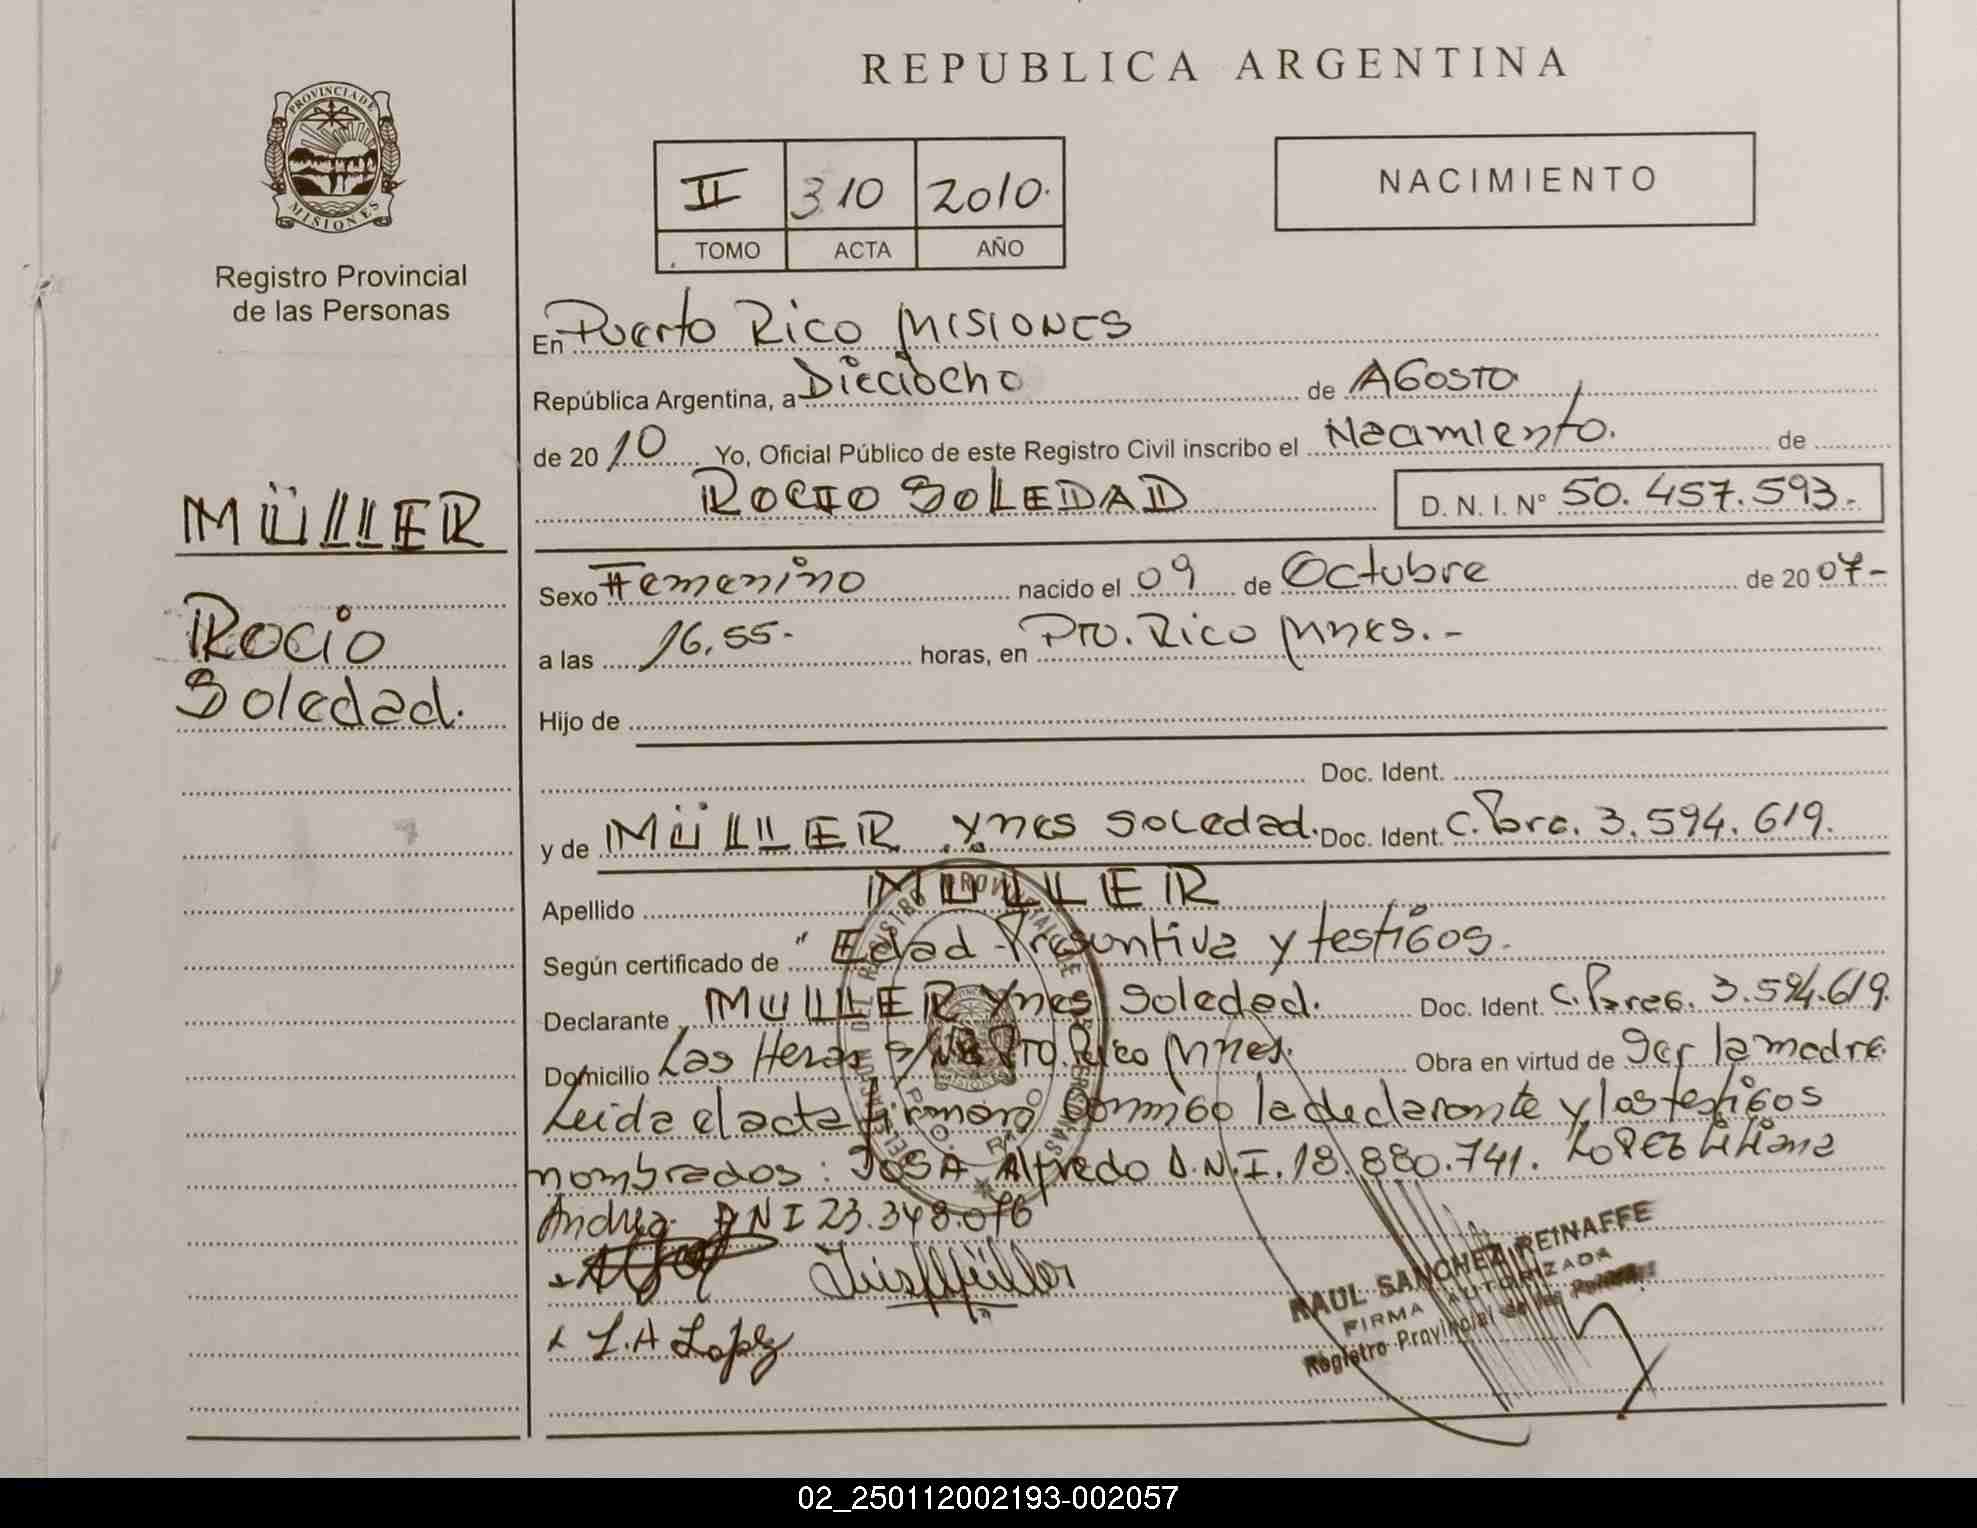 REPUBLICA ARGENTINA
PROVINCIA DE MISIONES
Registro Provincial
de las Personas
II 310 2010.
TOMO ACTA AÑO
NACIMIENTO
MÜLLER
Rocio
Soledad.
En Puerto Rico MISIONES
República Argentina, a Dieciocho de AGOSTO
de 2010 Yo, Oficial Público de este Registro Civil inscribo el Nacimiento. de
ROCIO SOLEDAD D. N. I. N° 50.457.593.-
Sexo Femenino nacido el 09 de Octubre de 2007-
a las 16,55- horas, en Pto. Rico Mnes.-
Hijo de
Doc. Ident.
y de MÜLLER Ynes Soledad. Doc. Ident. C. 3.594.619.
Apellido MULLER
Según certificado de " Edad Presuntiva y testigos.
Declarante MULLER Ynes Soledad. Doc. Ident. C. 3.594.619.
Domicilio Las Heras S/N° PTO. Rico Mnes. Obra en virtud de ser la madre
Leida el acta firman conmigo la declarante y los testigos
nombrados: JOSA Alfredo D.N.I. 18.880.741. LOPEZ Liliana
Andrea DNI 23.348.076
L.A Lopez
RAUL SANCHEZ REINAFFE
FIRMA AUTORIZADA
Registro Provincial de las
02_250112002193-002057